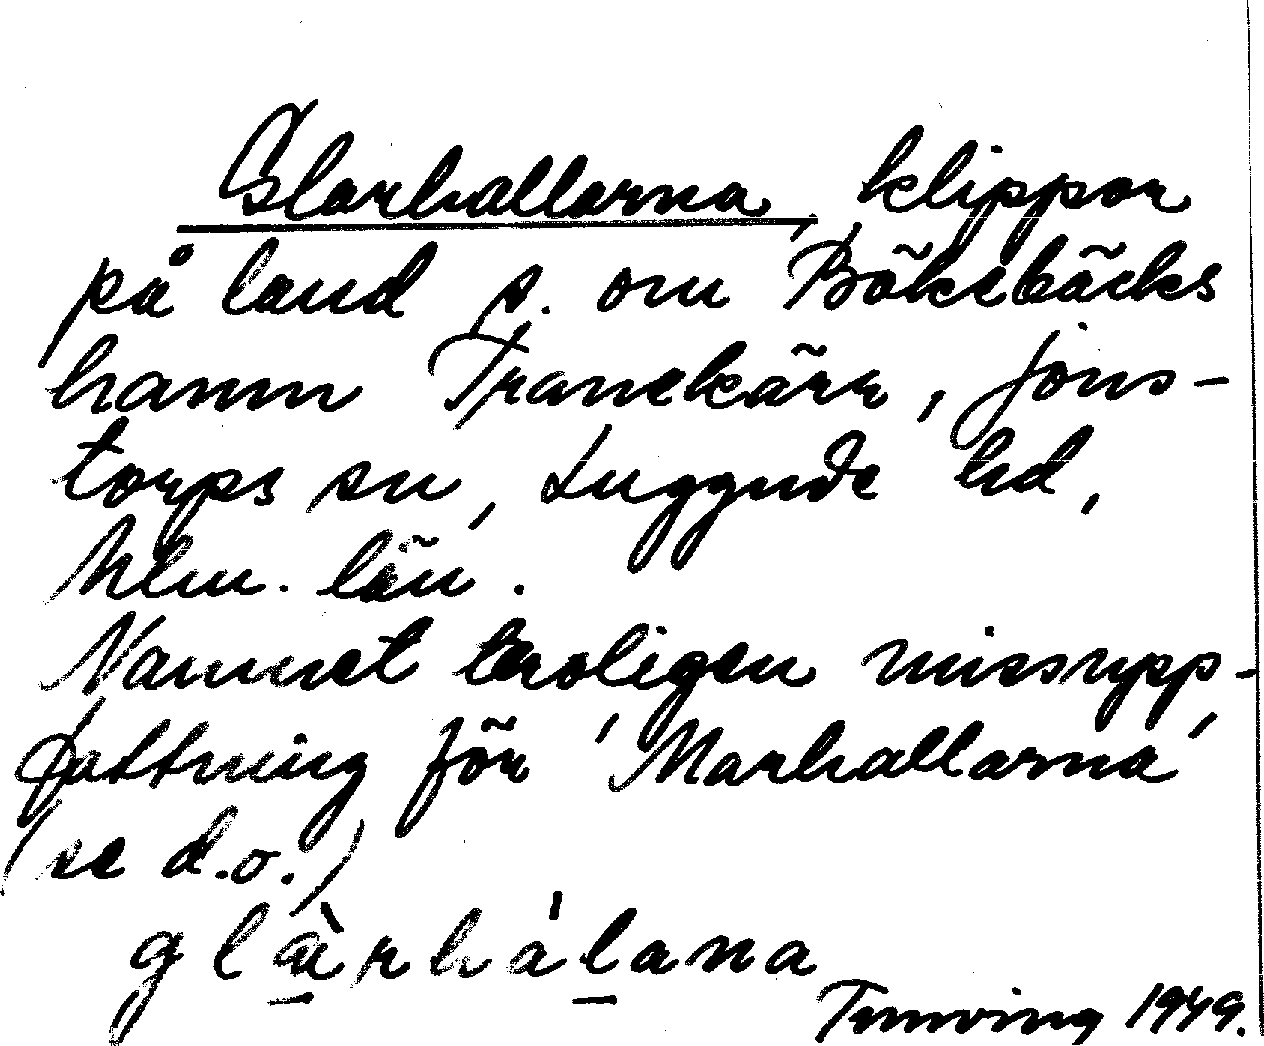 Glarhallarna, klippor
på land s. om Bökebäcks
hamn Tranekärr, Jons-
torps sn, Luggude hd,
Mlm. län.
Namnet troligen missupp-
fattning för 'Marhallarna'
(se d.o.)
glàrhálana